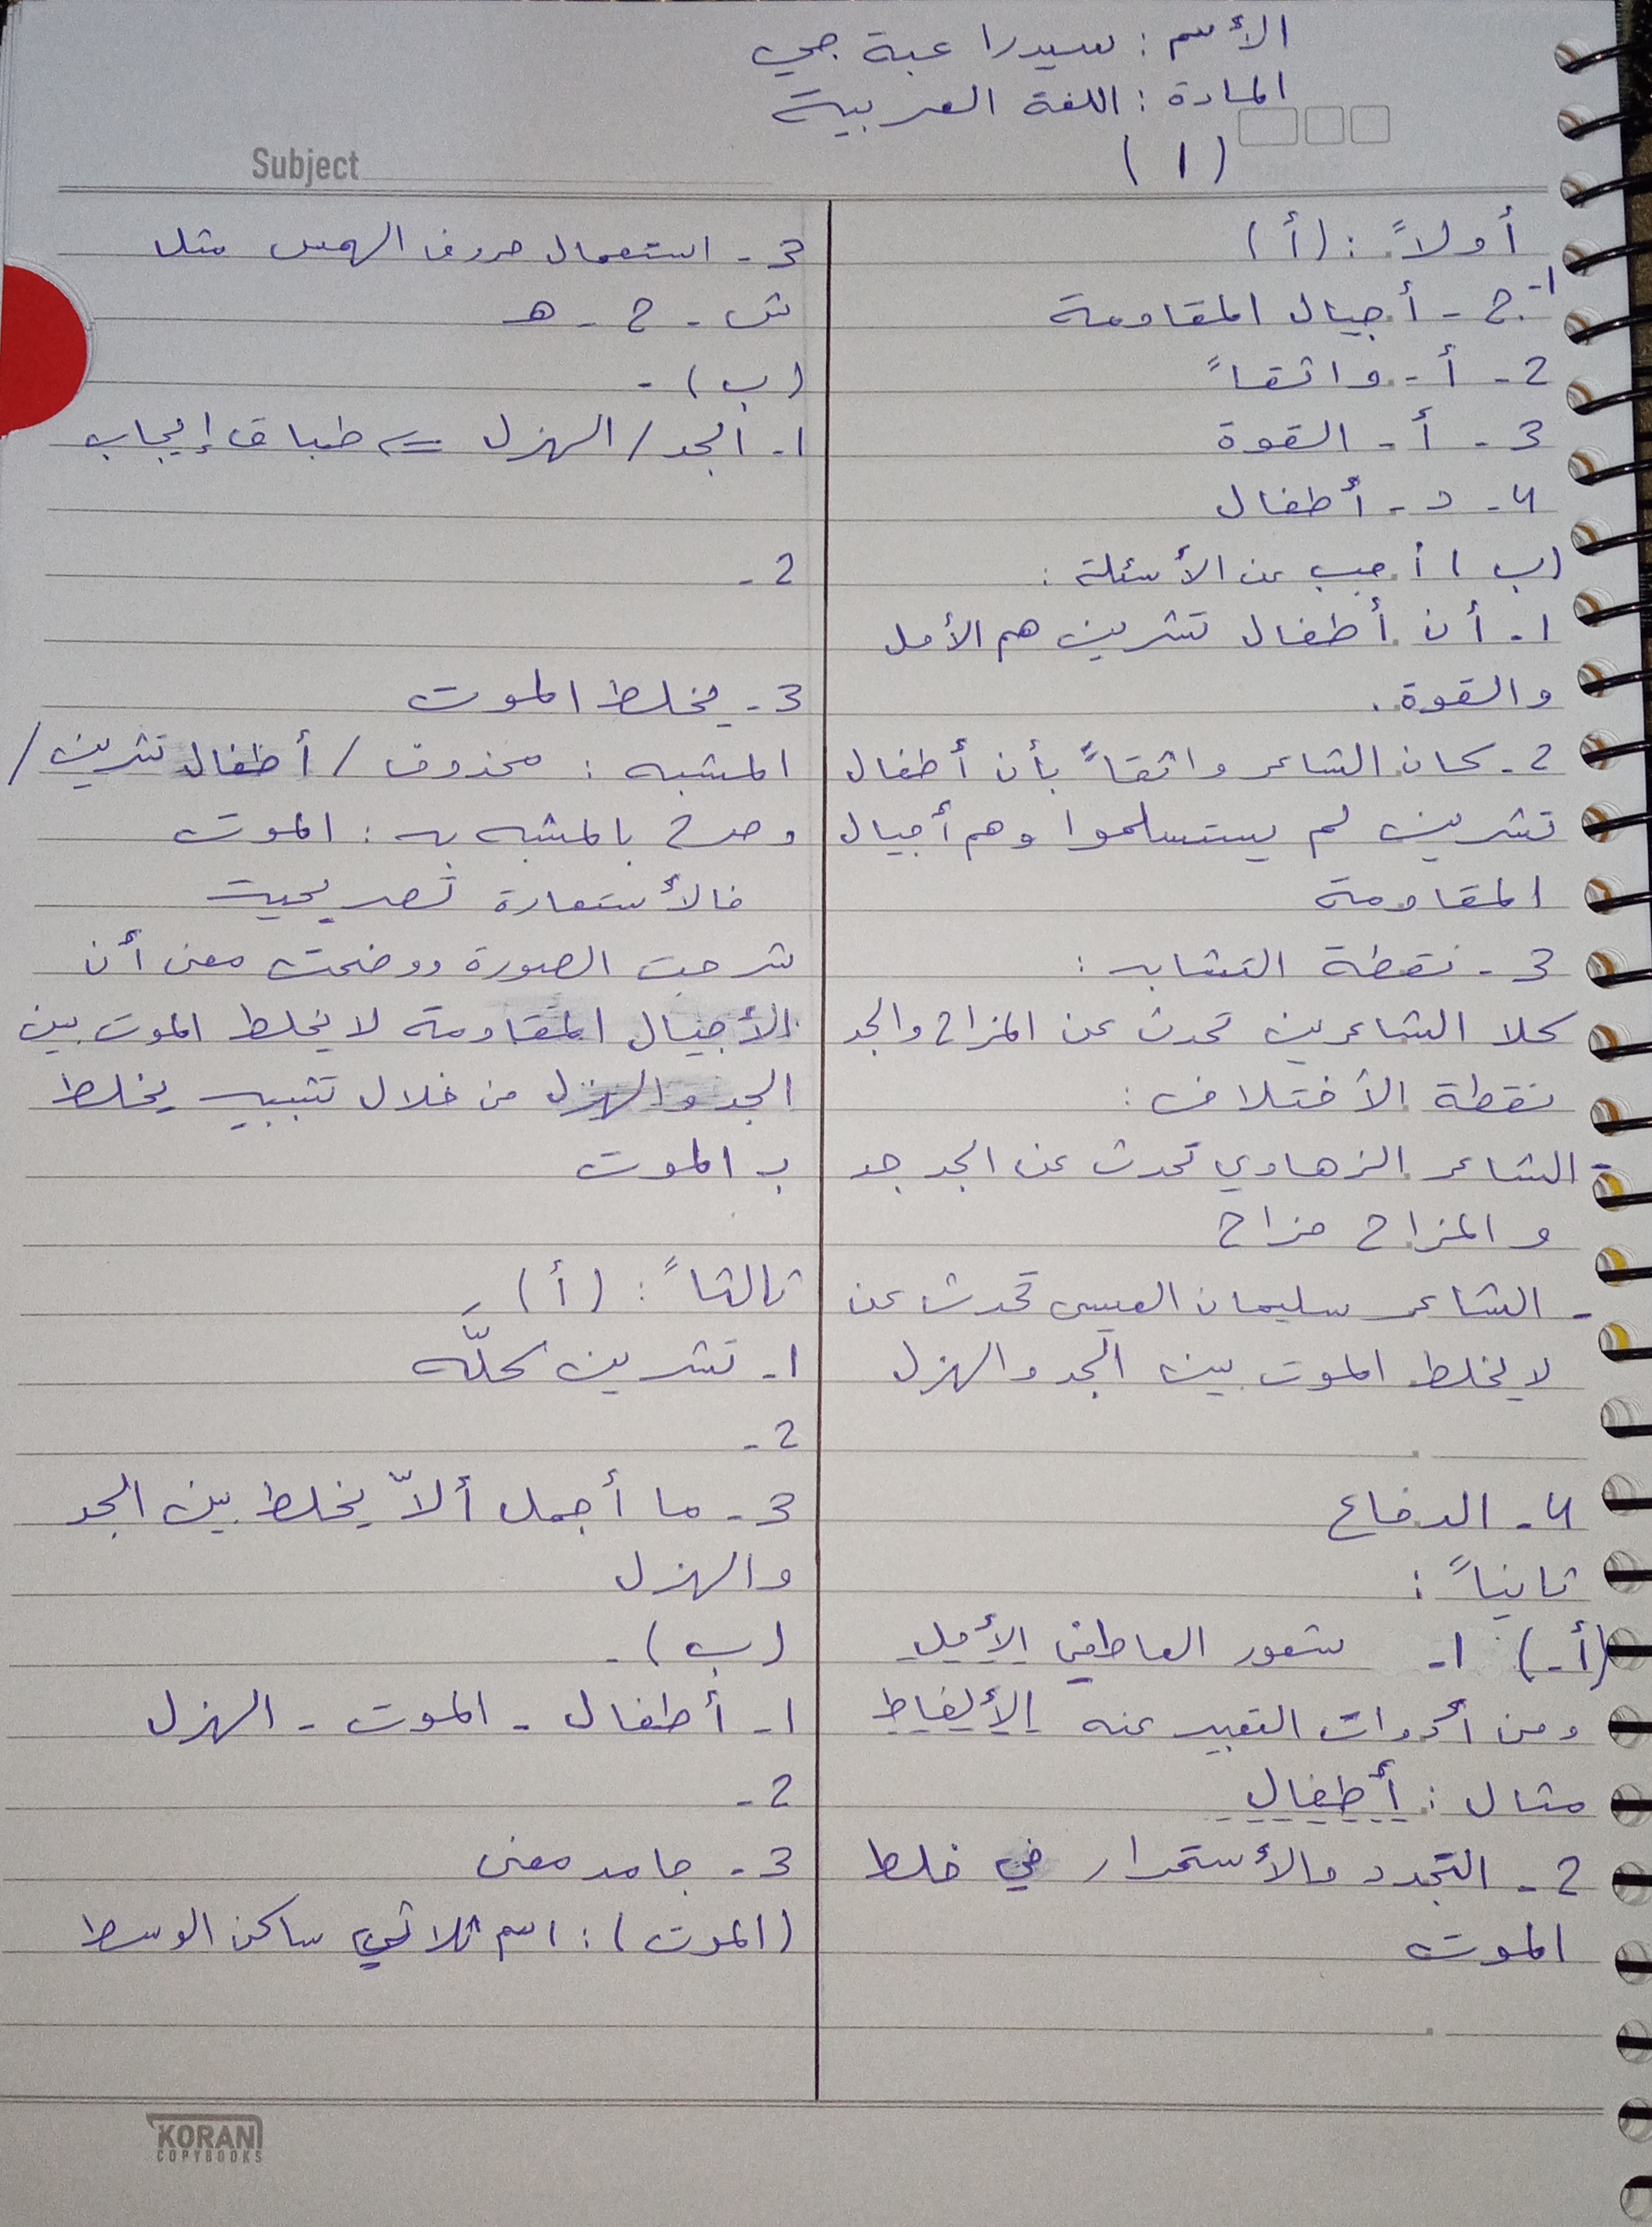 الأسم : سيدرا عبة جي
المادة : اللغة العربية
(1)
Subject
أولاً : (أ)
1- ج - أجيال المقاومة
2 - أ - واثقاً
3 - أ - القوة
4 - د - أطفال
(ب) أجب عن الأسئلة :
1 - أن أطفال تشرين هم الأمل
والقوة .
2 - كان الشاعر واثقاً بأن أطفال
تشرين لم يستسلموا وهم أجيال
المقاومة
3 - نقطة التشابه :
كلا الشاعرين تحدث عن المزاح والجد
نقطة الأختلاف :
- الشاعر الزهاوي تحدث عن الجد جد
و المزاح مزاح
- الشاعر سليمان العيسى تحدث عن
لا يخلط الموت بين الجد والهزل
4 - الدفاع
ثانياً :
(أ-) 1- شعور العاطفي الأمل
ومن أدوات التعبير عنه الألفاظ
مثال : أطفال
2 - التجدد والأستمرار في خلط
الموت
3 - استعمال حروف الهمس مثل
ش - ح - هـ
(ب) -
1 - الجد / الهزل => طباق إيجاب
2 -
3 - يخلط الموت
المشبه : محذوف / أطفال تشرين /
وصرح بالمشبه به : الموت
فالأستعارة تصريحية
شرحت الصورة ووضحت معنى أن
الأجيال المقاومة لا يخلط الموت بين
الجد والهزل من خلال تشبيه يخلط
بـ الموت
ثالثاً : (أ) -
1 - تشرين كلَّه
2 -
3 - ما أجمل ألّا يخلط بين الجد
والهزل
(ب) -
1 - أطفال - الموت - الهزل
2 -
3 - جامد معنى
(الموت) : اسم ثلاثي ساكن الوسط
KORAN
COPYBOOKS